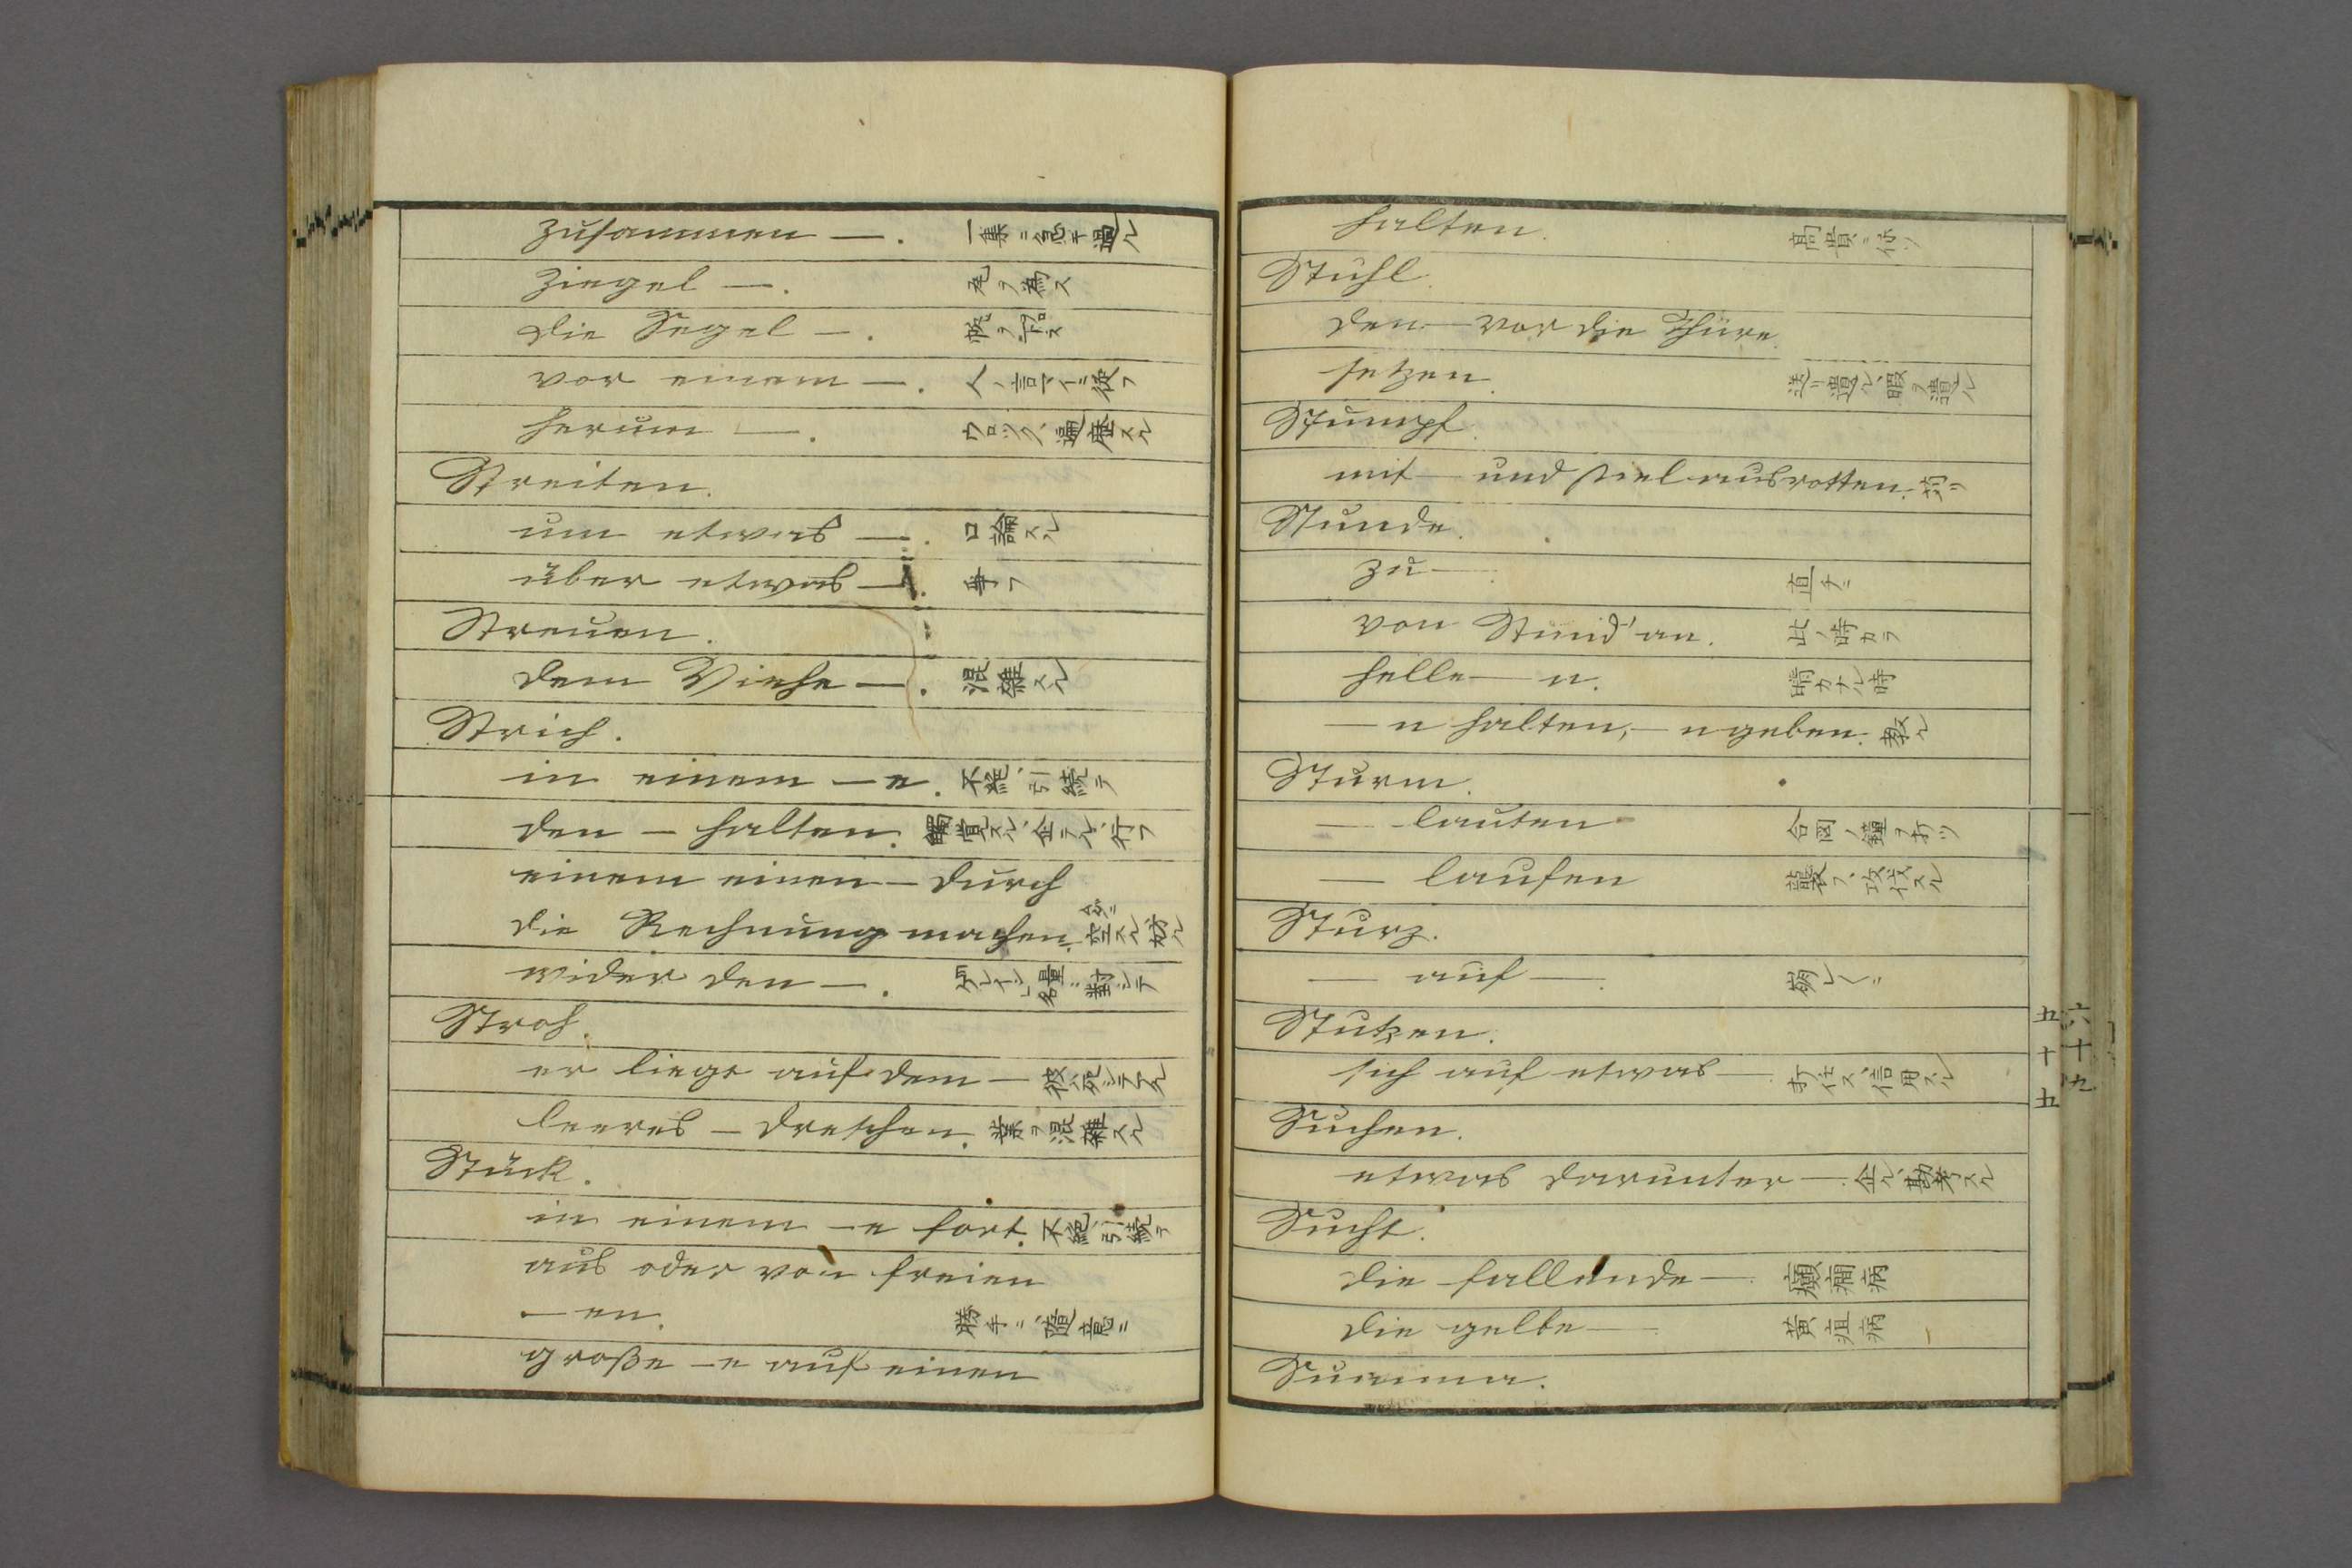 zusammen —. 一集ニ急キ過ル
Ziegel —. 瓦ヲ為ス
die Segel —. 帆ヲ下ロス
vor einem —. 人ノ言マイニ從フ
herum —. ウロツク、遍歴スル
Streiten.
um etwas —. 口論スル
über etwas —. 争フ
Streuen.
dem Viehe —. 混雜スル
Strich.
in einem —e. 不絶、引続テ
den — halten. 觸覚スル、企ヲル、行フ
einem einen — durch
die Rechnung machen. 空スル、妨ル
wider den —. 對シテ
Stroh.
er liegt auf dem — 彼、死シテヲル
leeres — dreschen. 業ヲ混雜スル
Stück.
in einem —e fort. 不絶、引続テ
aus oder von freien
—en. 勝手ニ、随意ニ
große —e auf einen
halten. 高貴ニ保ツ
Stuhl.
den — vor die Thüre
setzen. 送リ遣ル、暇ヲ遣ル
Stumpf.
mit — und stiel ausrotten.
Stunde.
zu —. 直チニ
von Stund' an. 此ノ時カラ
helle —n. 晴カナル時
—n halten, —n geben. 教ル
Sturm.
— lauten 合図ノ鐘ヲ打ツ
— laufen 襲フ、攻伐スル
Sturz.
— auf —.
Stutzen.
sich auf etwas — 打任ス、信用スル
Suchen.
etwas darunter —. 企ル、勘考スル
Sucht.
die fallende —. 癲癇病
die gelbe —. 黄疸病
Summa.
五十五
六十九